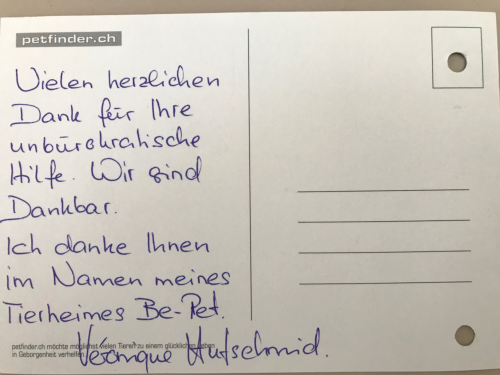 petfinder.ch
Vielen herzlichen
Dank für Ihre
unbürokratische
Hilfe. Wir sind
Dankbar.
Ich danke Ihnen
im Namen meines
Tierheimes Be-Pet.
Véronique Hufschmid.
petfinder.ch möchte möglichst vielen Tieren zu einem glücklichen Leben
in Geborgenheit verhelfen.